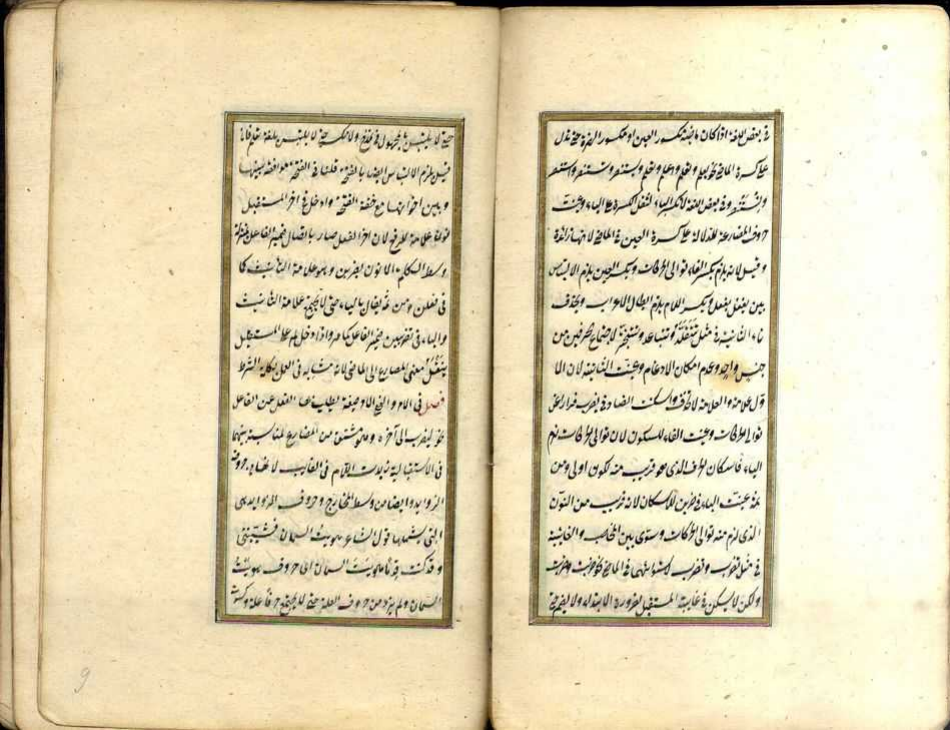 فى بعض اللغة اذا كان ماضيه مكسور العين او مكسور الهمزة حتى تدل
على كسرة الماضى نحو يعلم وتعلم واعلم ونعلم ويستنصر وتستنصر واستنصر
ونستنصر وفى بعض اللغة لا يكسر الياء لثقل الكسرة على الياء وعينت
حروف المضارعة للدلالة على كسرة العين فى الماضى لانها زائدة
وقيل لانه يلزم بكسر الفاء توالى الحركات وبكسر العين يلزم الالتباس
بين يفعل يفعل وبكسر اللام يلزم ابطال الاعراب ويحذف
تاء الثانية فى مثل تتقلد وتتباعد وتتبختر لاجتماع الحرفين من
جنس واحد وعدم امكان الادغام وعينت الثانية لان الا
ولى علامة والعلامة لا تحذف واسكنت الضاد فى يضرب فرارا عن
توالى الحركات وعينت الفاء للسكون لان توالى الحركات لزم
الياء فاسكان الحرف الذى هو قريب منه يكون اولى ومن
ثمه عينت الباء فى ضربن للاسكان لانه قريب من النون
الذى لزم منه توالى الحركات وسوى بين المخاطب والغايبة
فى مثل تضرب وتضرب لاستوائهما فى الماضى نحو ضربت وضربت
ولكن لا يسكن فى غايبة المستقبل لضرورة الابتداء ولا يضم حتى
حتى لا يلتبس بالمجهول فى تمدح ولا يكسر حتى لا يلتبس بلغة تعلم فان
قيل يلزم الالتباس ايضا بالفتحة قلنا فى الفتحة موافقة بينها
وبين اخواتها مع خفة الفتحة وادخل فى اخر المستقبل
نونا علامة للرفع لان اخر الفعل صار باتصال ضمير الفاعل بمنزلة
وسط الكلمة الا نون يضربن وهو علامة التأنيث كما
فى فعلن ومن ثمه يقال بالياء حتى لا يجتمع علامة التأنيث
والياء فى تضربين ضمير الفاعل كما مر واذا دخل لم على المستقبل
ينتقل معنى المضارع الى الماضى لانه مشابه فى العمل بكلمة الشرط
فصل فى الامر والنهى الامر صيغة يطلب بها الفعل عن الفاعل
نحو ليضرب الى آخره وهو مشتق من المضارع لمناسبة بينهما
فى الاستقبالية زيدت اللام فى الغايب لانها من حروف
الزوايد وايضا من وسط المخارج وحروف الزوايد هى
التى يشملها قول الشاعر هويت السمان فشيبننى
وقد كنت قدما هويت السمانا اى حروف هويت
السمان ولم يزد من حروف العلة حتى لا يجتمع حرفا علة وكسرت
9